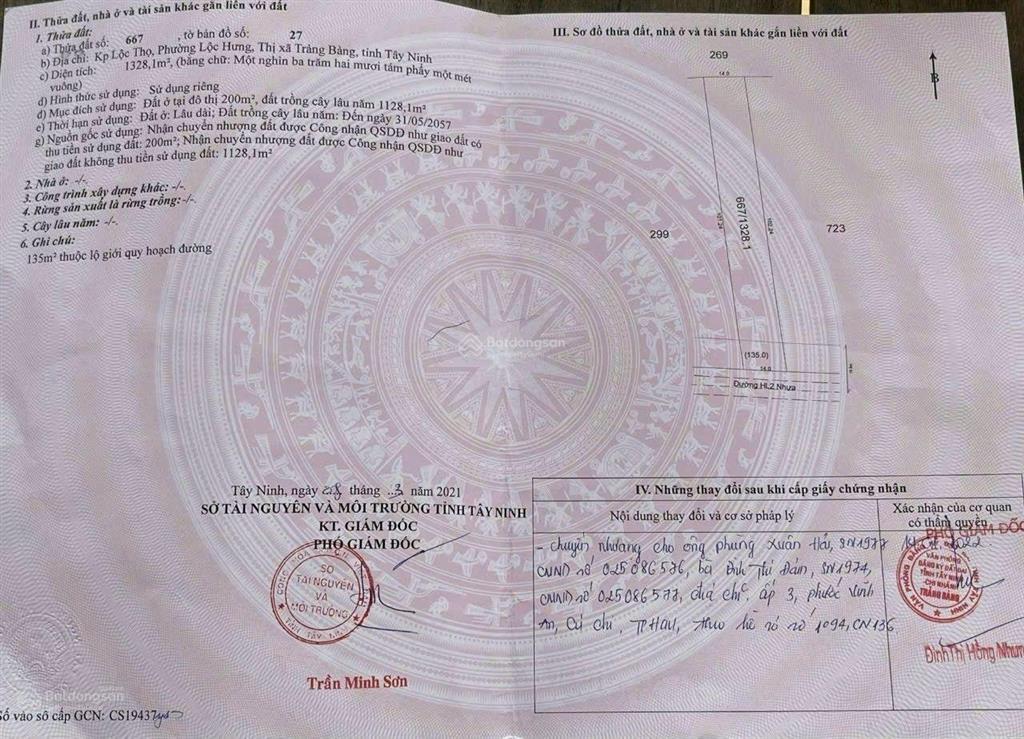 II. Thửa đất, nhà ở và tài sản khác gắn liền với đất
1. Thửa đất:
a) Thửa đất số: 667 , tờ bản đồ số: 27
b) Địa chỉ: Kp Lộc Thọ, Phường Lộc Hưng, Thị xã Trảng Bàng, tỉnh Tây Ninh
c) Diện tích: 1328,1m², (bằng chữ: Một nghìn ba trăm hai mươi tám phẩy một mét
vuông)
d) Hình thức sử dụng: Sử dụng riêng
đ) Mục đích sử dụng: Đất ở tại đô thị 200m², đất trồng cây lâu năm 1128,1m²
e) Thời hạn sử dụng: Đất ở: Lâu dài; Đất trồng cây lâu năm: Đến ngày 31/05/2057
g) Nguồn gốc sử dụng: Nhận chuyển nhượng đất được Công nhận QSDĐ như giao đất có
thu tiền sử dụng đất: 200m²; Nhận chuyển nhượng đất được Công nhận QSDĐ như
giao đất không thu tiền sử dụng đất: 1128,1m²
2. Nhà ở: -/-.
3. Công trình xây dựng khác: -/-.
4. Rừng sản xuất là rừng trồng: -/-.
5. Cây lâu năm: -/-.
6. Ghi chú:
135m² thuộc lộ giới quy hoạch đường
III. Sơ đồ thửa đất, nhà ở và tài sản khác gắn liền với đất
B
269
14.0
667/1328.1
299
723
(135.0)
14.0
Đường HL2 Nhựa
Batdongsan
Tây Ninh, ngày 28 tháng 3 năm 2021
SỞ TÀI NGUYÊN VÀ MÔI TRƯỜNG TỈNH TÂY NINH
KT. GIÁM ĐỐC
PHÓ GIÁM ĐỐC
SỞ
TÀI NGUYÊN
VÀ
MÔI TRƯỜNG
TỈNH TÂY NINH
Trần Minh Sơn
Batdongsan
Số vào sổ cấp GCN: CS19437
IV. Những thay đổi sau khi cấp giấy chứng nhận
Nội dung thay đổi và cơ sở pháp lý
Xác nhận của cơ quan
có thẩm quyền
- chuyển nhượng cho ông phùng Xuân Hải, SN1977
CMND số 025086576, bà Đinh Thị Đảm, SN1974,
CMND số 025086577, địa chỉ: ấp 3, phước Vĩnh
An, Củ Chi, TPHCM, theo hồ sơ số 1094, CN136
PHÓ GIÁM ĐỐC
2022
VĂN PHÒNG
ĐĂNG KÝ ĐẤT ĐAI
TỈNH TÂY NINH
CHI NHÁNH
TRẢNG BÀNG
Đinh Thị Hồng Nhung
Batdongsan